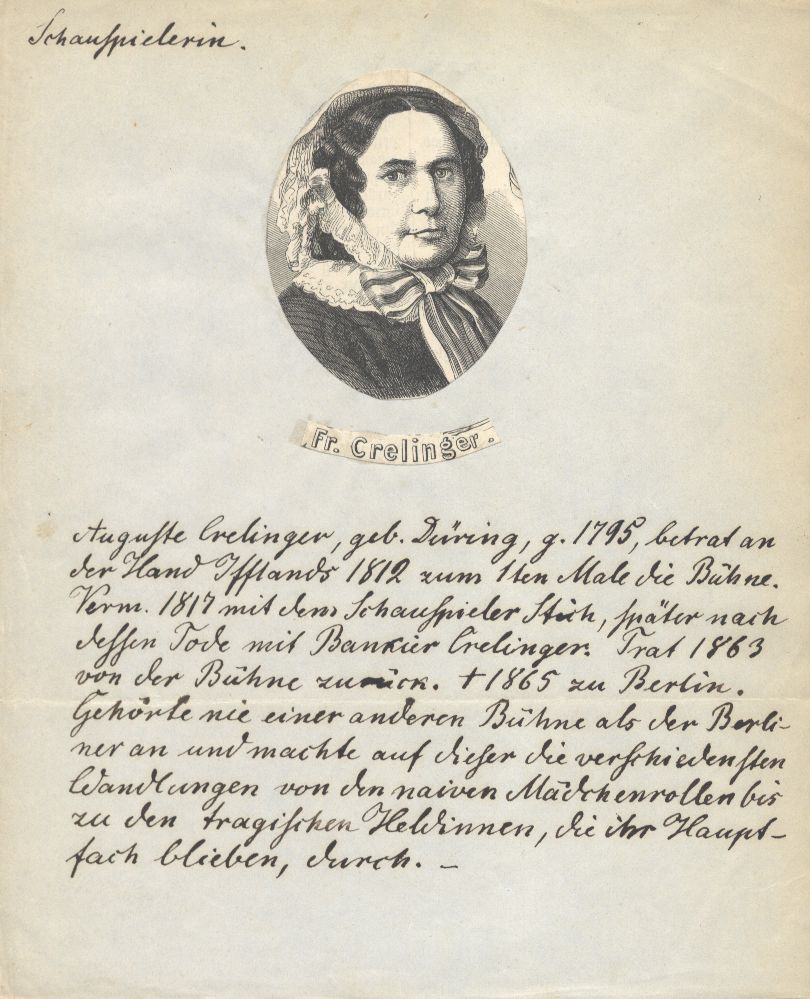 Schauspielerin.
Fr. Crelinger.
Auguste Crelinger, geb. Düring, g. 1795, betrat an
der Hand Ifflands 1812 zum 1ten Male die Bühne.
Verm. 1817 mit dem Schauspieler Stich, später nach
dessen Tode mit Bankier Crelinger. Trat 1863
von der Bühne zurück. † 1865 zu Berlin.
Gehörte nie einer anderen Bühne als der Berli-
ner an und machte auf dieser die verschiedensten
Wandlungen von den naiven Mädchenrollen bis
zu den tragischen Heldinnen, die ihr Haupt-
fach blieben, durch. –